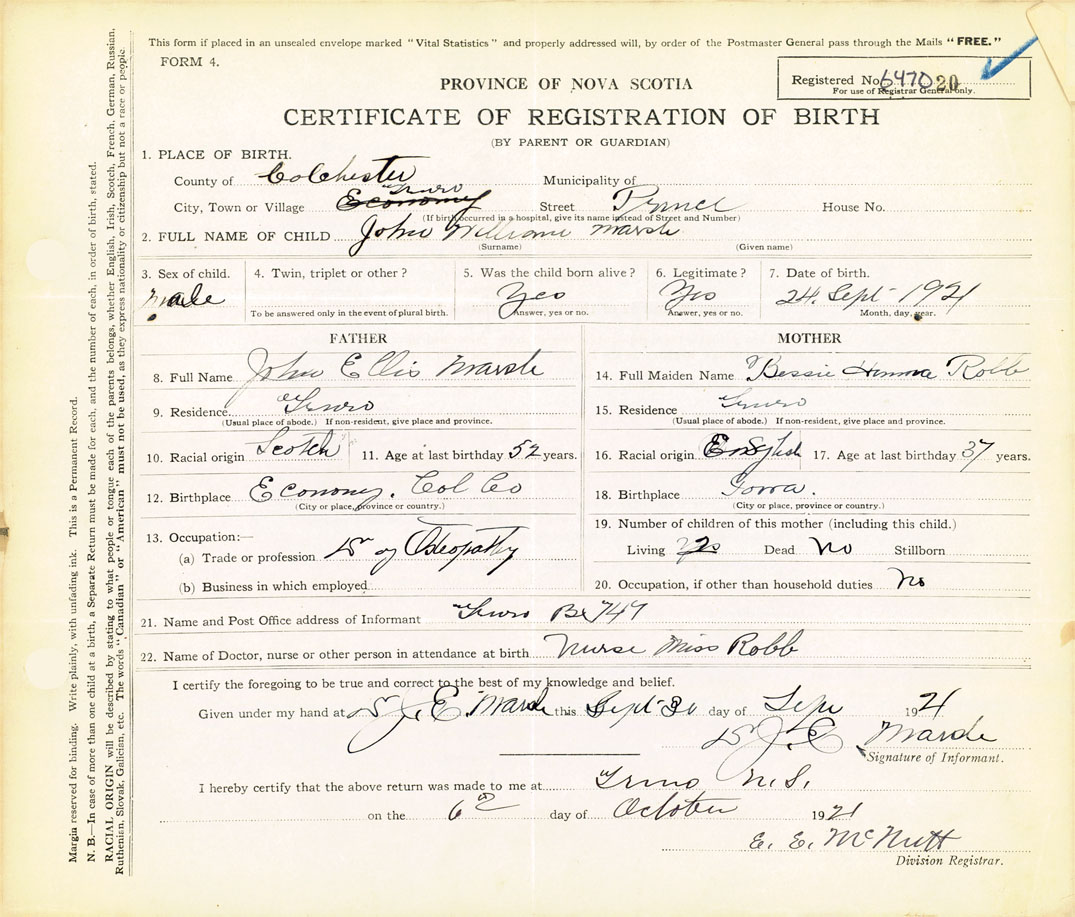 This form if placed in an unsealed envelope marked "Vital Statistics" and properly addressed will, by order of the Postmaster General pass through the Mails "FREE."
FORM 4.
Registered No. 6470 20
For use of Registrar General only.
PROVINCE OF NOVA SCOTIA
CERTIFICATE OF REGISTRATION OF BIRTH
(BY PARENT OR GUARDIAN)
1. PLACE OF BIRTH.
County of Colchester Municipality of
Truro
City, Town or Village Economy Street Prince House No.
(If birth occurred in a hospital, give its name instead of Street and Number)
2. FULL NAME OF CHILD John William Marsh
(Surname) (Given name)
3. Sex of child. 4. Twin, triplet or other? 5. Was the child born alive? 6. Legitimate? 7. Date of birth.
male Yes Yes 24. Sept 1921
To be answered only in the event of plural birth. Answer, yes or no. Answer, yes or no. Month, day, year.
FATHER
8. Full Name John Ellis Marsh
9. Residence Truro
(Usual place of abode.) If non-resident, give place and province.
10. Racial origin Scotch 11. Age at last birthday 52 years.
12. Birthplace Economy. Col Co
(City or place, province or country.)
13. Occupation:—
(a) Trade or profession Dr of Osteopathy
(b) Business in which employed
MOTHER
14. Full Maiden Name Bessie Robb
15. Residence Truro
(Usual place of abode.) If non-resident, give place and province.
16. Racial origin English 17. Age at last birthday 37 years.
18. Birthplace Iowa.
(City or place, province or country.)
19. Number of children of this mother (including this child.)
Living Dead No Stillborn
20. Occupation, if other than household duties No
21. Name and Post Office address of Informant Truro Bx 747
22. Name of Doctor, nurse or other person in attendance at birth Nurse Miss Robb
I certify the foregoing to be true and correct to the best of my knowledge and belief.
Given under my hand at Dr J. E. Marsh this Sept 30 day of Sept 1921
Dr J. E. Marsh
Signature of Informant.
I hereby certify that the above return was made to me at Truro N.S.
on the 6th day of October 1921
E. E. McNutt
Division Registrar.
Margin reserved for binding. Write plainly, with unfading ink. This is a Permanent Record.
N. B.—In case of more than one child at a birth, a Separate Return must be made for each, and the number of each, in order of birth, stated.
RACIAL ORIGIN will be described by stating to what people or tongue each of the parents belongs, whether English, Irish, Scotch, French, German, Russian,
Ruthenian, Slovak, Galician, etc. The words "Canadian" or "American" must not be used, as they express nationality or citizenship but not a race or people.